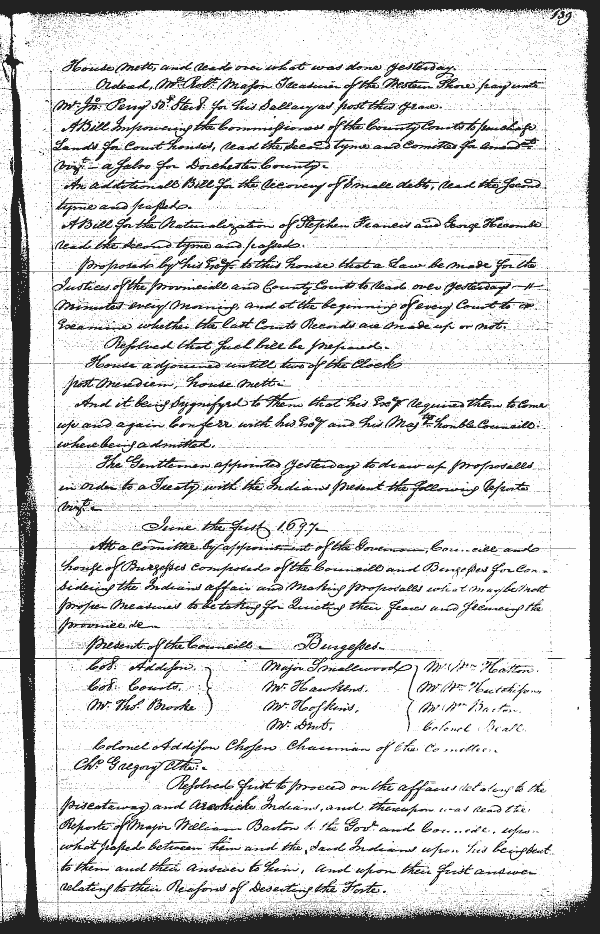 139
House mett, and read over what was done yesterday.
Ordead, Mr. Robt. Major Treasurer of the Western Shore pay unto
Mr. Jno. Perry 50£ Sterl. for his Sallary as post this year.
A Bill Impowering the Commissioners of the County Courts to purchase
Lands for Court houses, read the Second tyme and Comitted for Amendt.
vizt. a Salvo for Dorchester County.
An additionall Bill for the recovery of Small debts, read the Second
tyme and passed.
A Bill for the Naturalization of Stephen Francis and George Hacombe
read the Second tyme and passed.
Proposed by his Exy. to this house that a Law be made for the
Justices of the provinciall and County Courts to read over yesterdays
Minutes every Morning, and at the beginning of every Court to
Examine whether the last Courts Records are made up or not.
Resolved that Such bill be prepared.
House adjourned untill two of the Clock
post Meridiem, house mett.
And it being Sygnifyed to them that his Exy. required them to Come
up and again Conferr with his Exy. and his Majtys. honble Councill
where being admitted.
The Gentlemen appointed yesterday to draw up proposalls
in order to a Treaty with the Indians present the following Reporte
vizt.
June the first 1697
Att a Comittee by appointment of the Governour, Councill and
house of Burgesses composed of the Councill and Burgesses for Con-
sidering the Indians affair and Making proposalls what may be most
proper Measures to be taking for Quieting their fears and Secureing the
province &c
Present of the Councill Burgesses
Coll. Addison Major Smallwood Mr. Wm. Hatton
Coll. Courts Mr. Hawkins Mr. Wm. Hutchison
Mr. Thos. Brooke Mr. Hoskins Mr. Wm. Barton
Mr. Dent Colonel Beall
Colonel Addison Chosen Chairman of the Comittee
Chr. Gregory Clke.
Resolved first to proceed on the affaires relating to the
piscataway and Indians, and thereupon was read the
Reporte of Major William Barton to the Govr. and Councill, upon
what passed between him and the Said Indians upon his being sent
to them and their Answer to him, And upon their first answer
relating to their Reasons of Deserting the Forte.